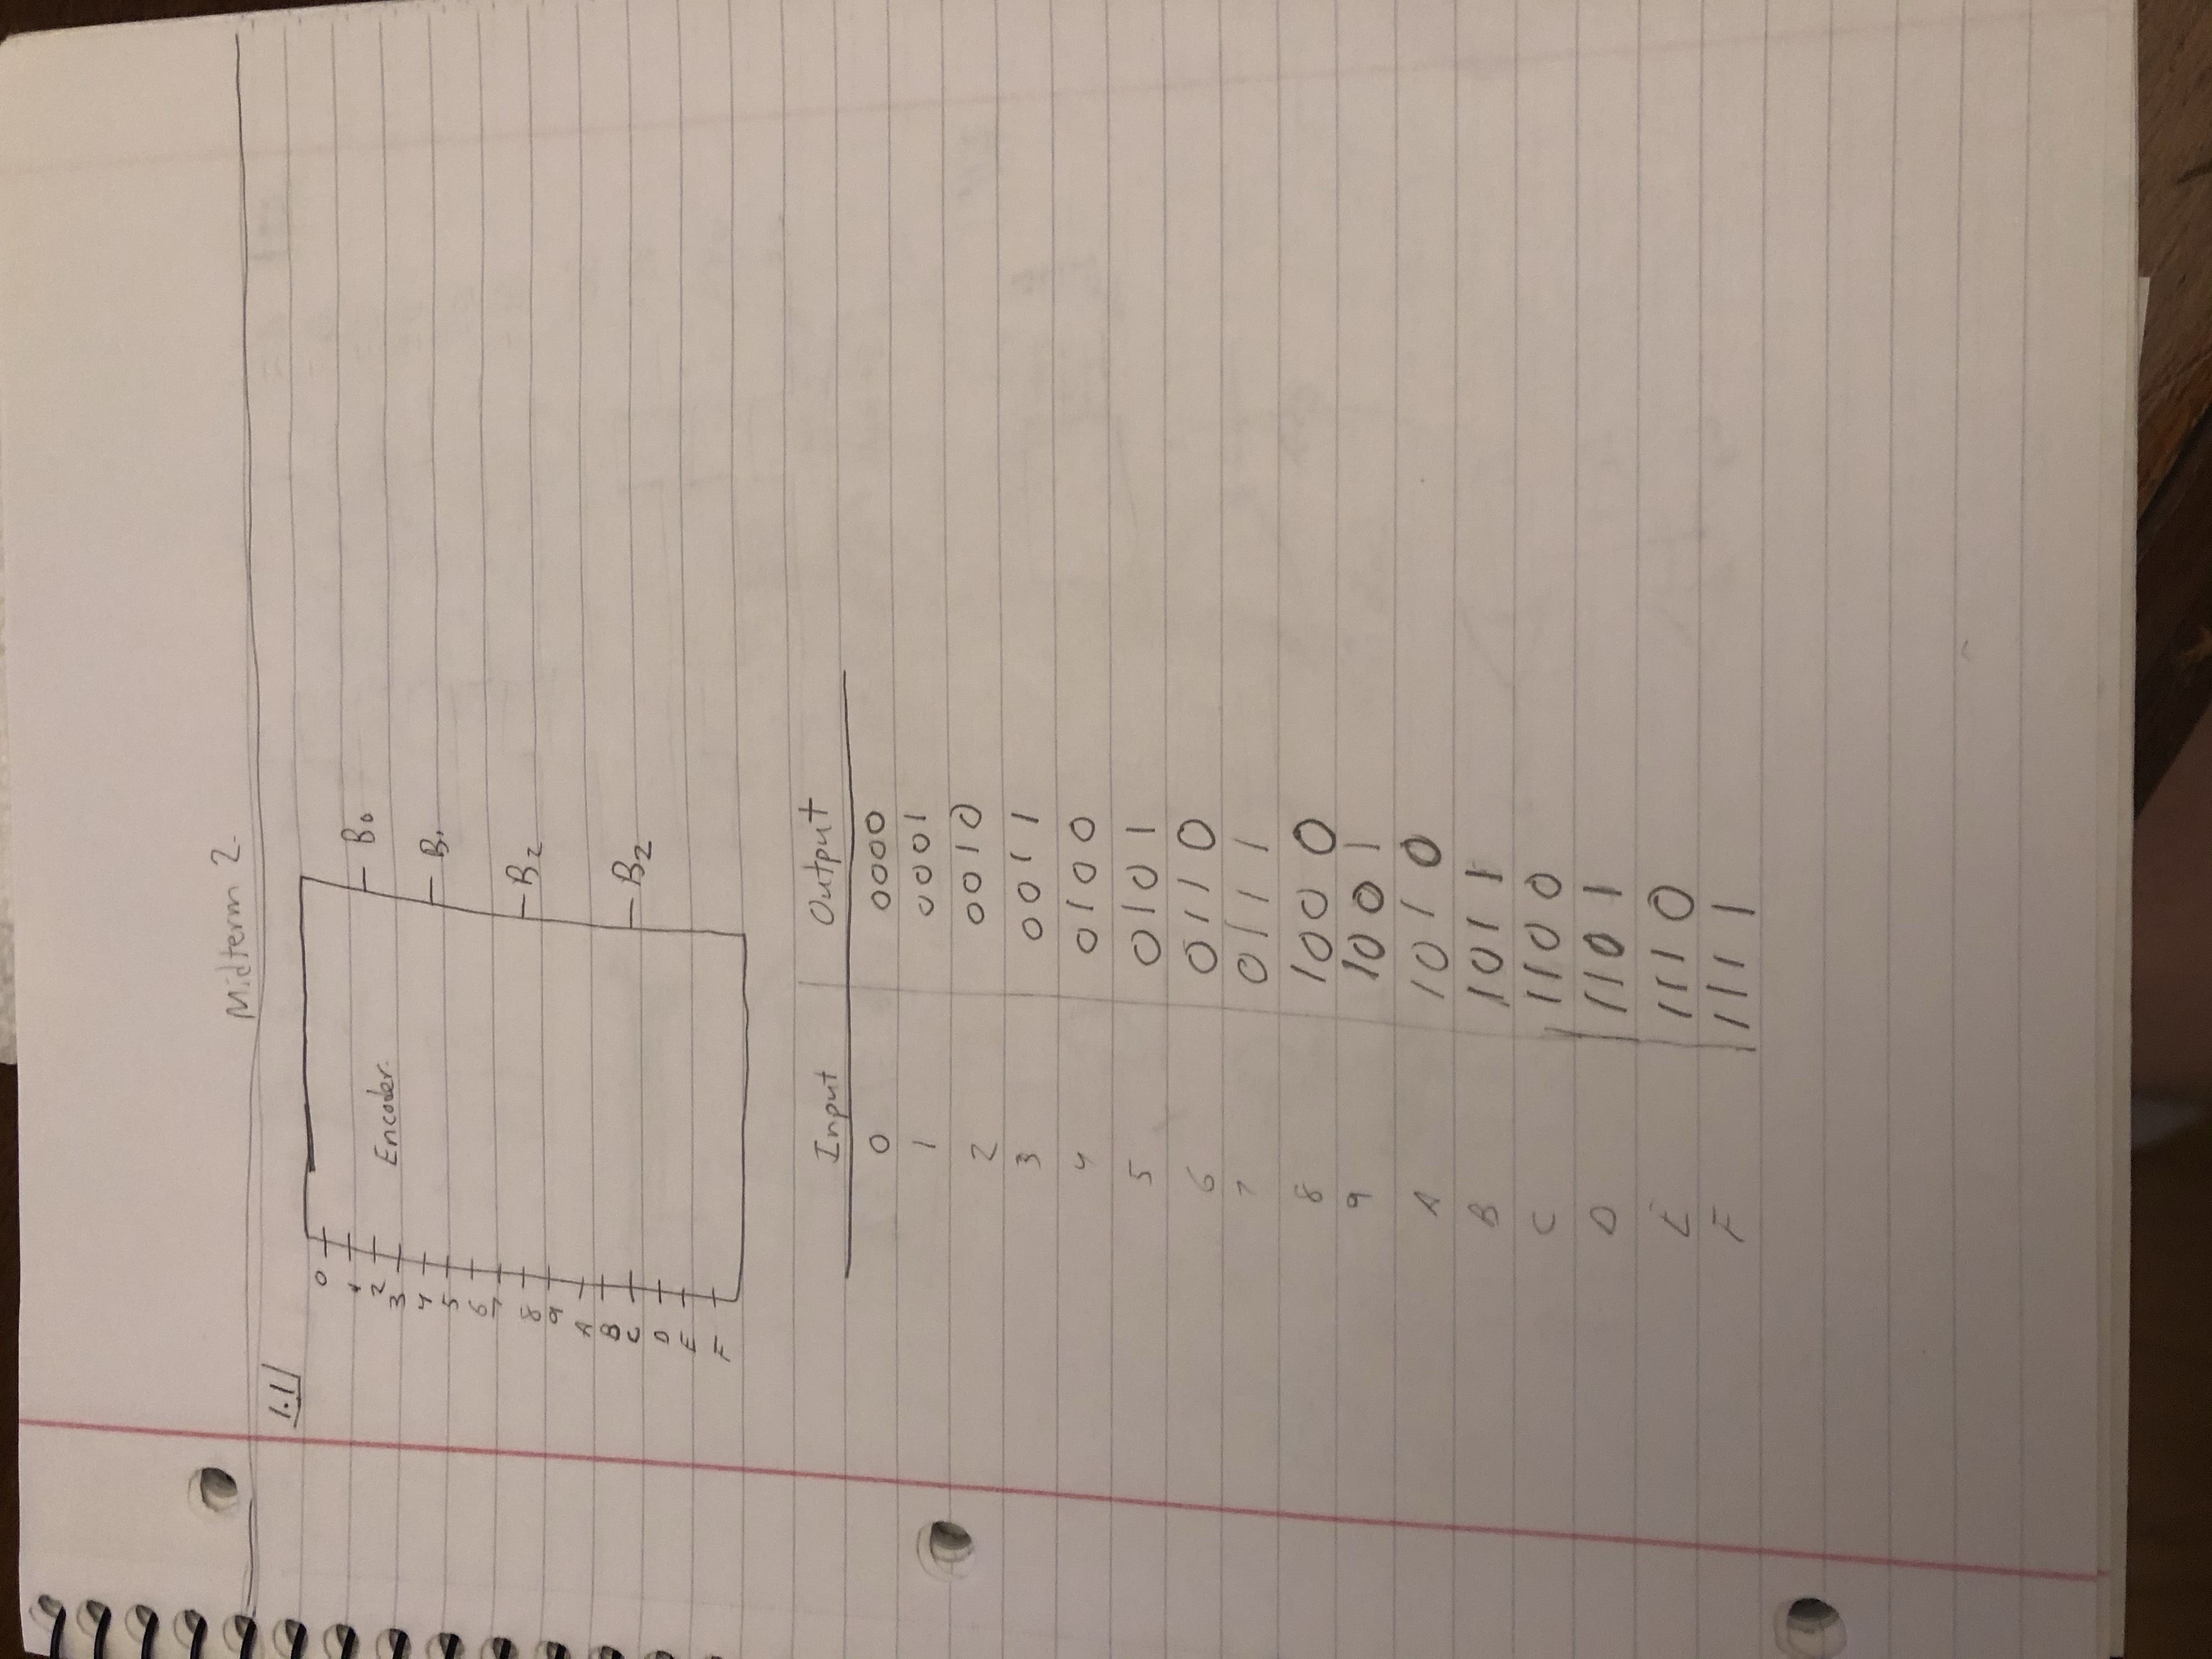 Midterm 2.
1.1
0
1
2
3
4
5
6
7
8
9
A
B
C
D
E
F
Encoder.
B0
B1
B2
B2
Input Output
0 0000
1 0001
2 0010
3 0011
4 0100
5 0101
6 0110
7 0111
8 1000
9 1001
A 1010
B 1011
C 1100
D 1101
E 1110
F 1111